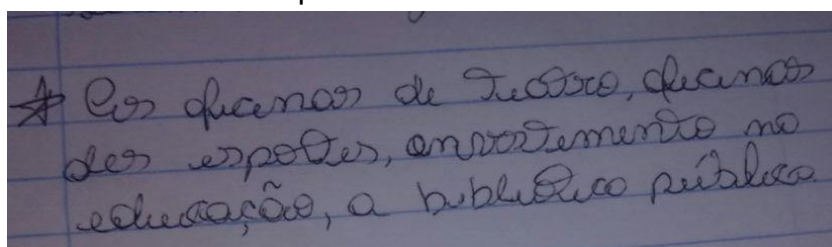 ★ Cos oficinas de Teatro, oficinas
des espotes, envertimento no
educação, a biblioteca pública